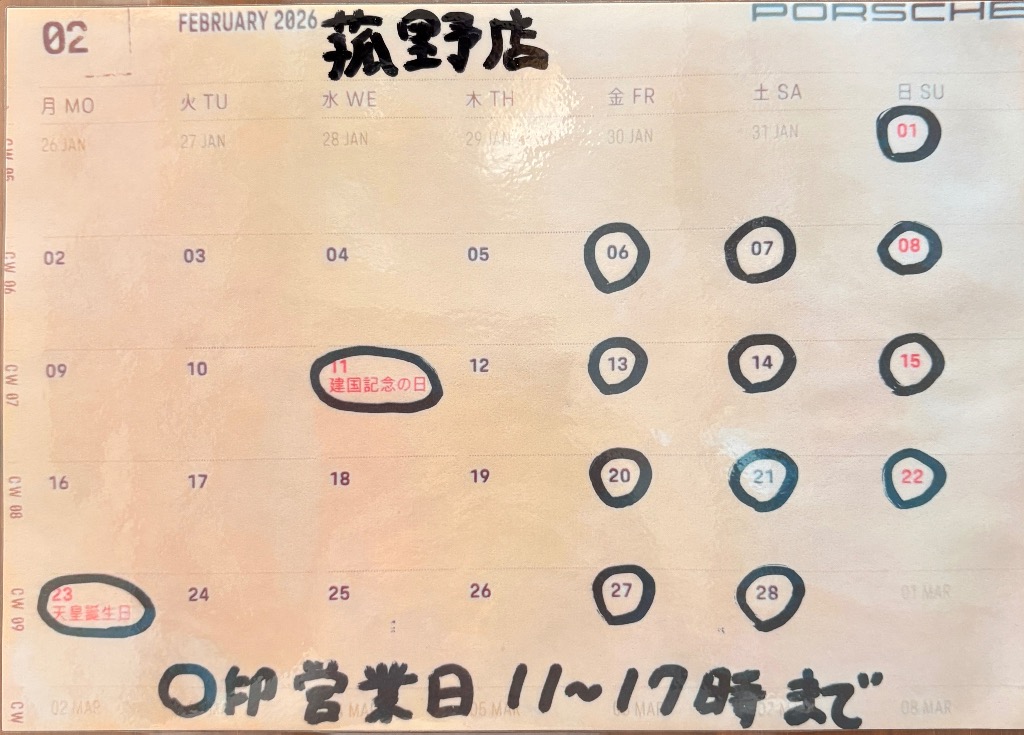 02 FEBRUARY 2026 菰野店 PORSCHE
月 MO 火 TU 水 WE 木 TH 金 FR 土 SA 日 SU
CW 05 26 JAN 27 JAN 28 JAN 29 JAN 30 JAN 31 JAN 01
CW 06 02 03 04 05 06 07 08
CW 07 09 10 11 12 13 14 15
建国記念の日
CW 08 16 17 18 19 20 21 22
CW 09 23 24 25 26 27 28 01 MAR
天皇誕生日
〇印営業日 11~17時まで
CW 02 MAR MAR 05 MAR 08 MAR